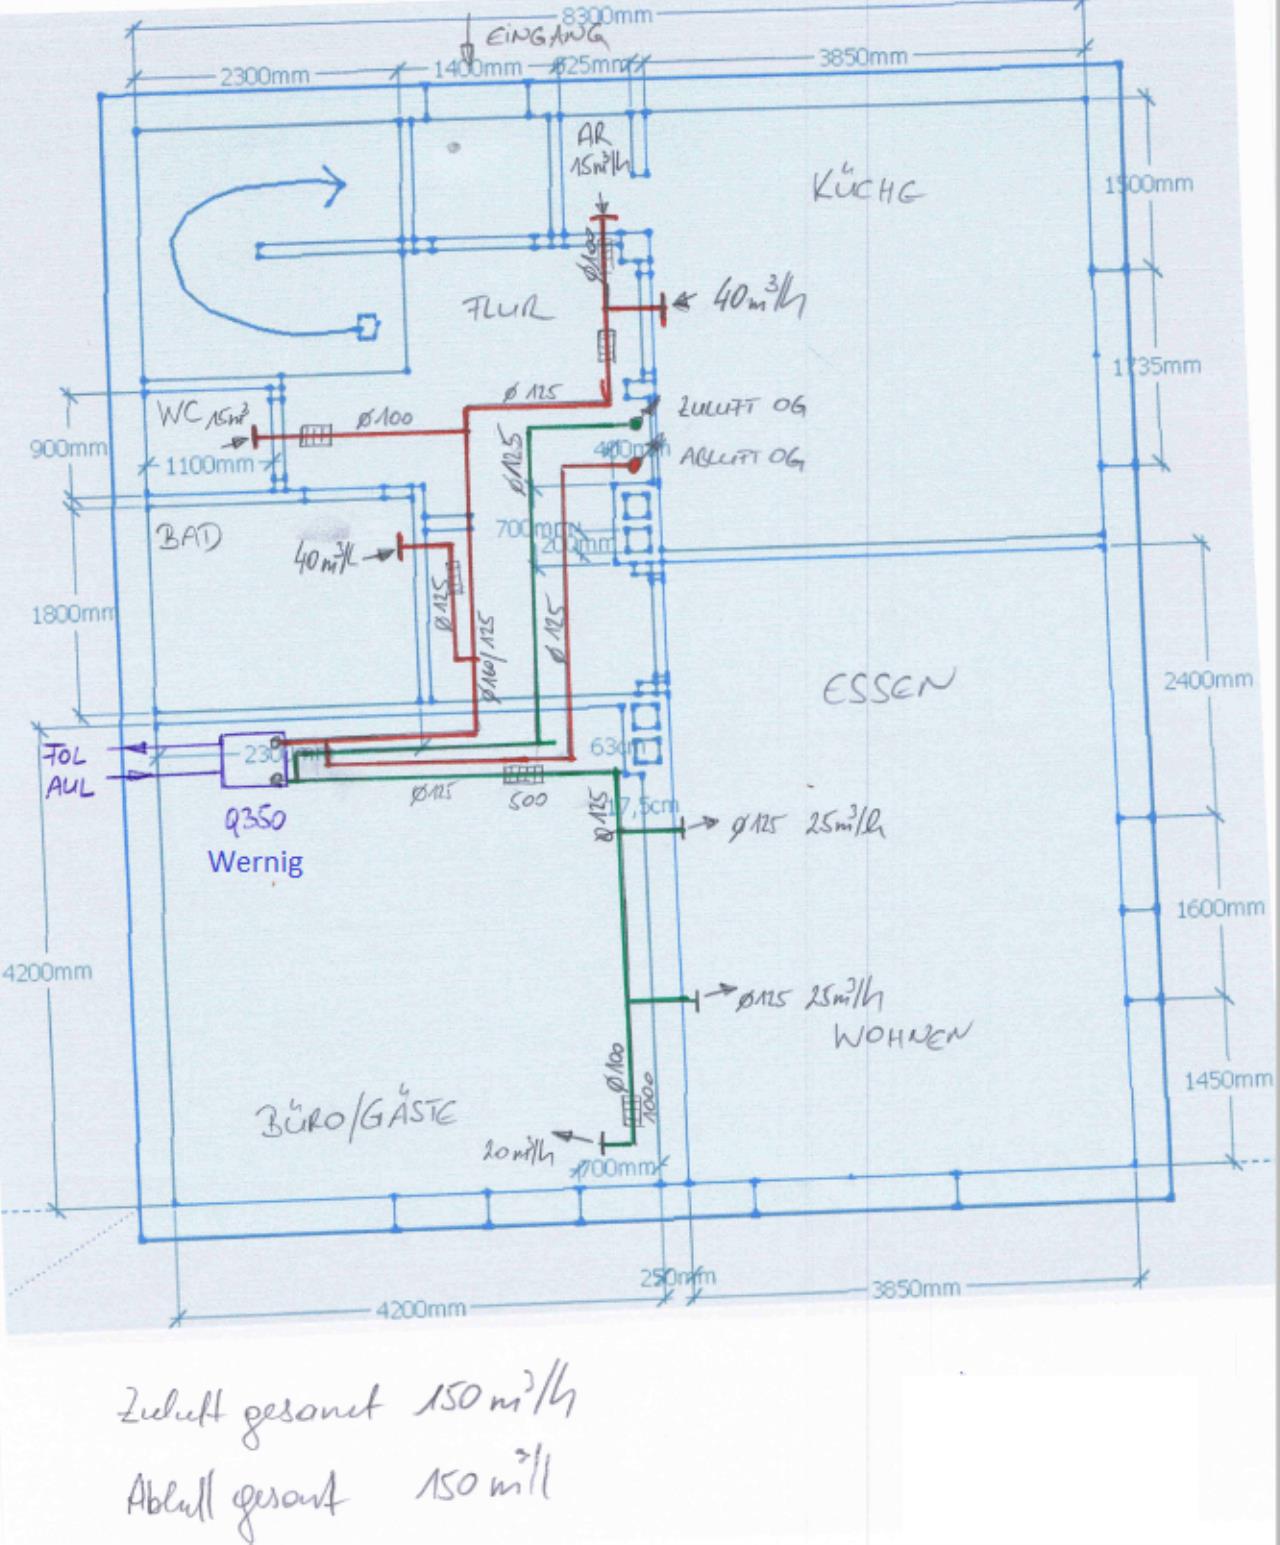 8300mm
EINGANG
2300mm
1400mm
625mm
3850mm
AR
15m³/h
KÜCHE
1500mm
Ø100
FLUR
40m³/h
1735mm
Ø 125
WC 15m³
Ø100
ZULUFT OG
900mm
1100mm
Ø125
400mm
ABLUFT OG
BAD
700mm
200mm
40m³/h
1800mm
Ø125
Ø160/125
Ø 125
ESSEN
2400mm
FOL
AUL
63cm
Ø125
500
Q350
Wernig
17,5cm
Ø125
Ø125 25m³/h
1600mm
4200mm
Ø125 25m³/h
WOHNEN
Ø100
1000
1450mm
BÜRO/GÄSTE
20m³/h
700mm
250mm
4200mm
3850mm
Zuluft gesamt 150 m³/h
Abluft gesamt 150 m³/h